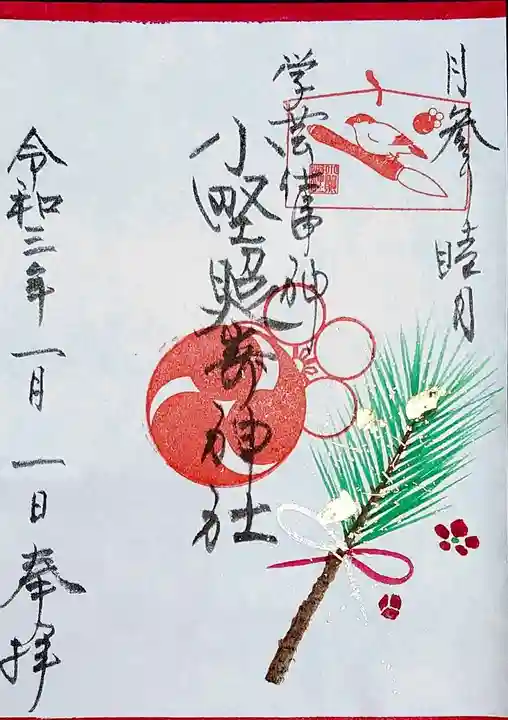 月参り 睦月
学芸偉神
小野照崎神社
令和三年一月一日奉拝